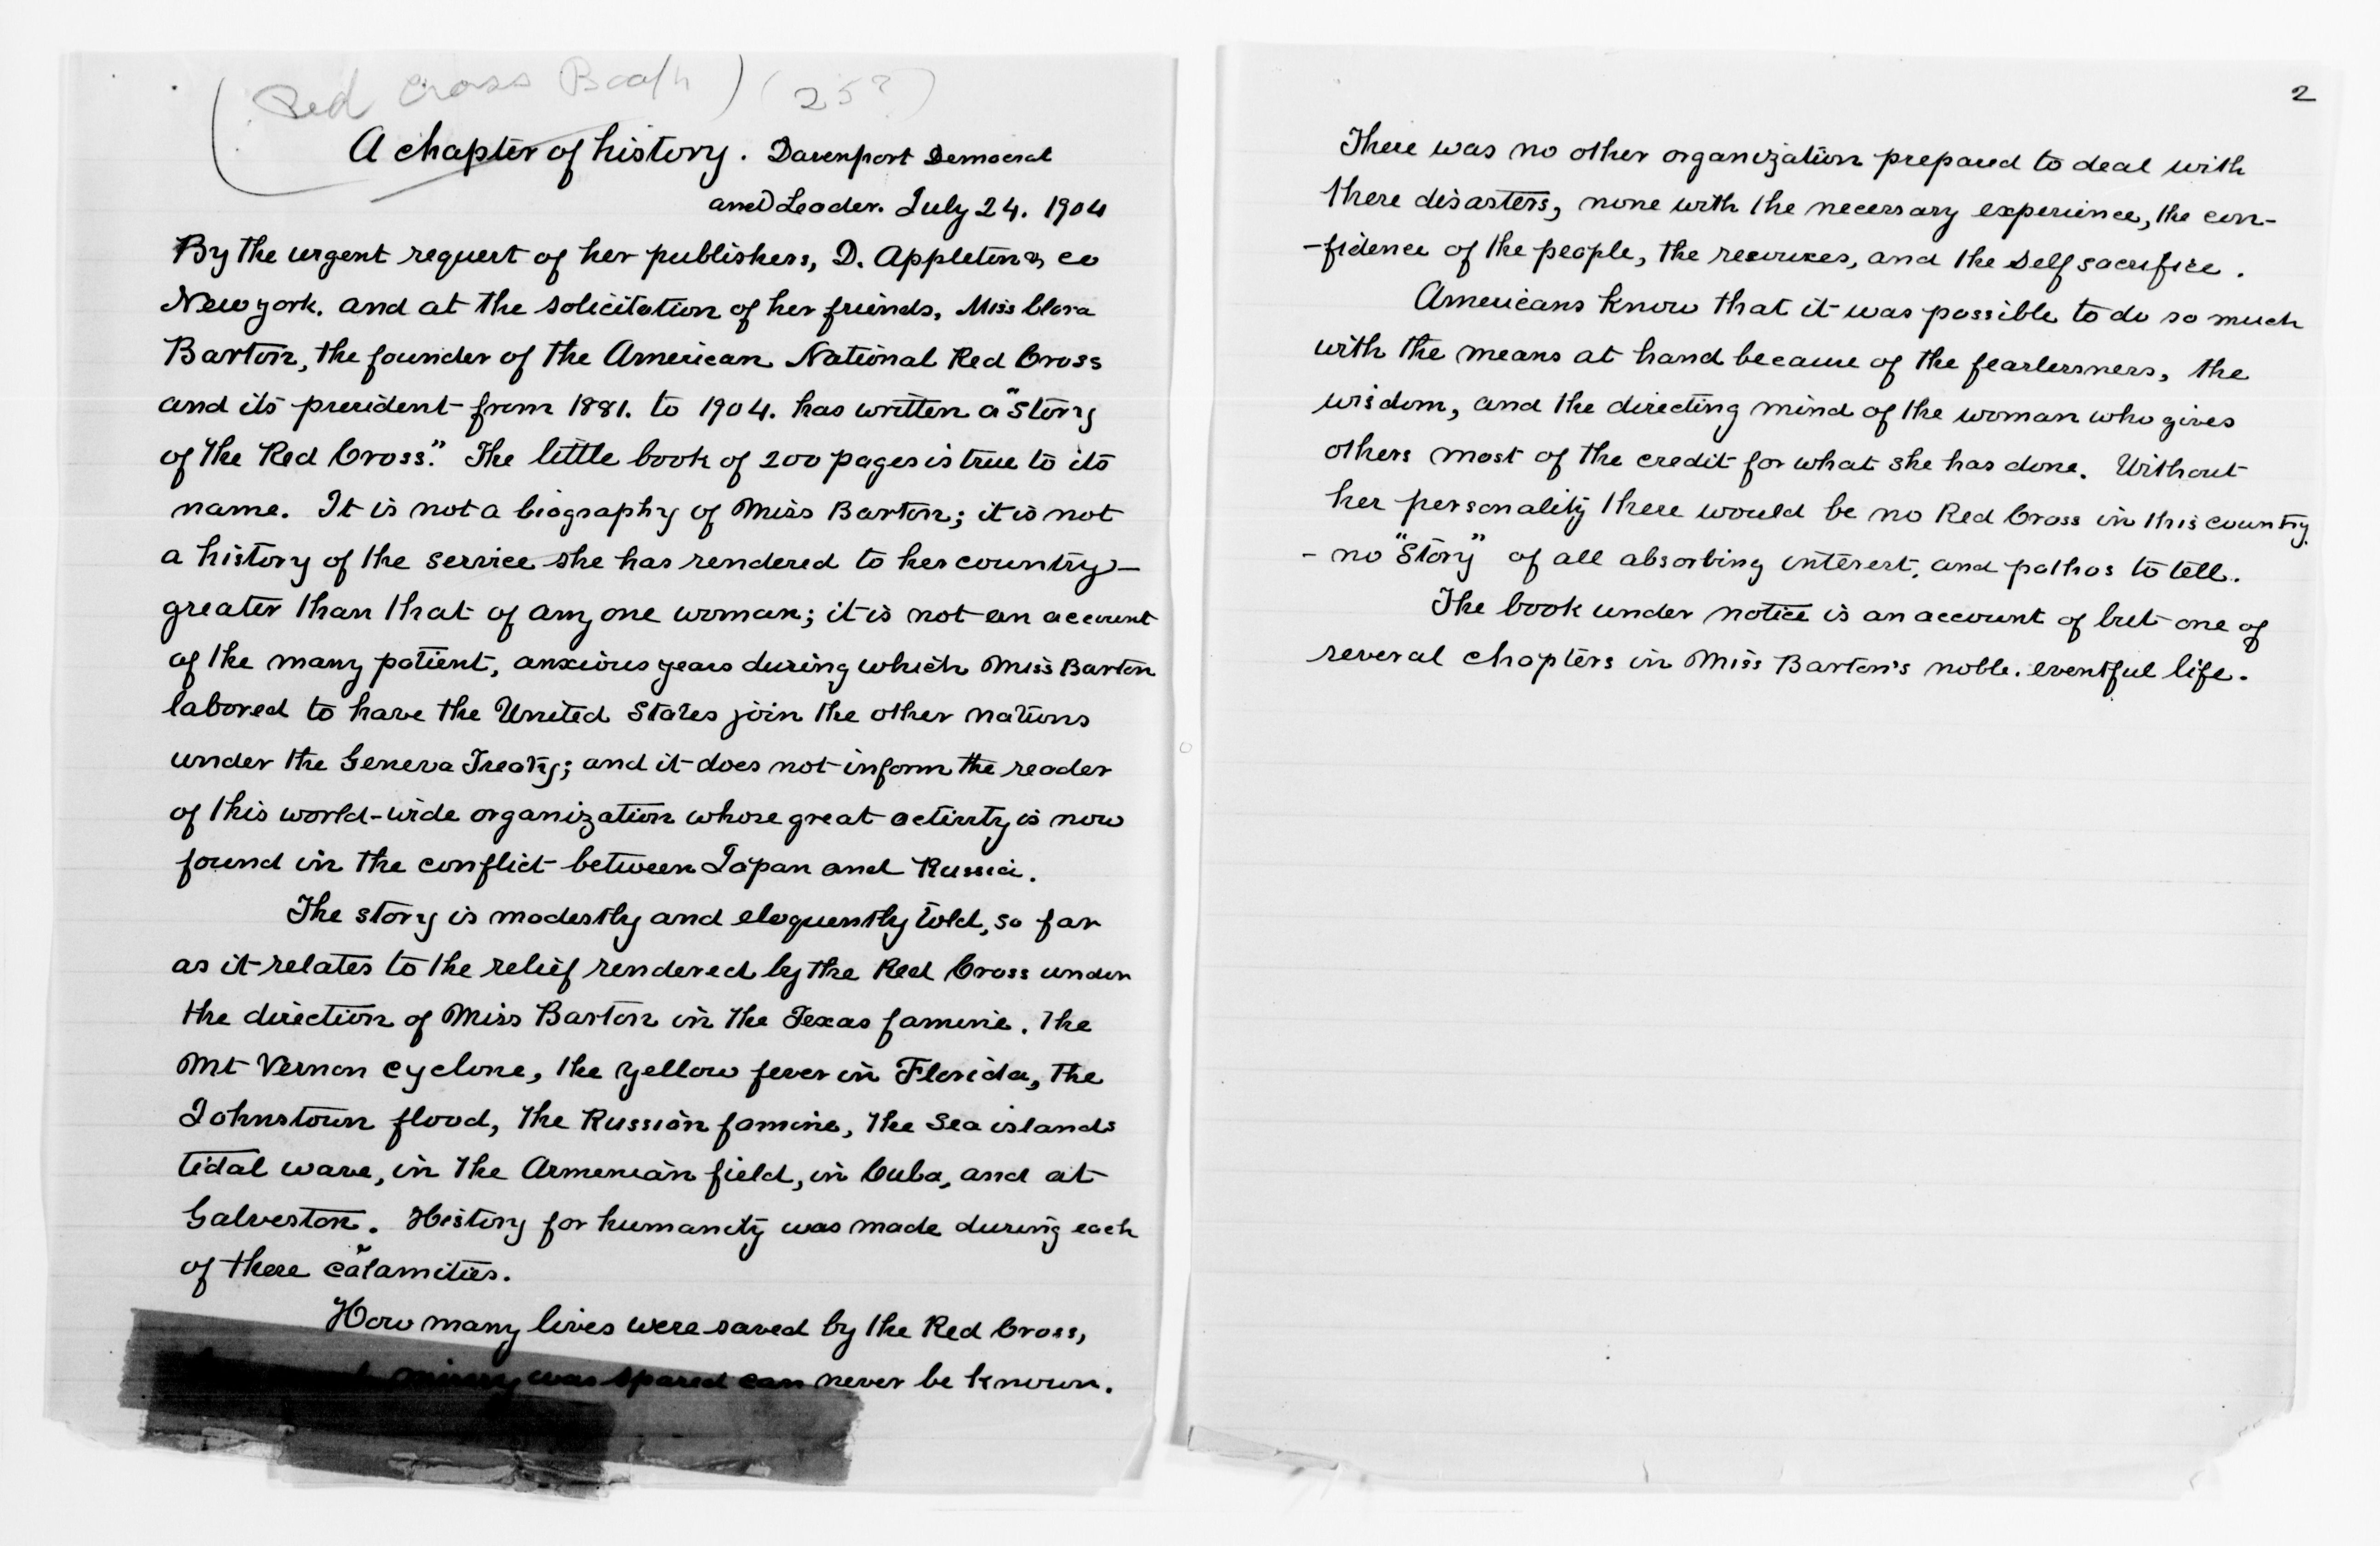 (Red Cross Book) (25?)
A chapter of history. Davenport Democrat
and Leader. July 24. 1904
By the urgent request of her publishers, D. Appleton & co
New york. and at the solicitation of her friends, Miss Clara
Barton, the founder of the American National Red Cross
and its president from 1881. to 1904. has written a "Story
of the Red Cross." The little book of 200 pages is true to its
name. It is not a biography of Miss Barton; it is not
a history of the service she has rendered to her country—
greater than that of any one woman; it is not an account
of the many patient, anxious years during which Miss Barton
labored to have the United States join the other nations
under the Geneva Treaty; and it does not inform the reader
of this world-wide organization whose great activity is now
found in the conflict between Japan and Russia.
The story is modestly and eloquently told, so far
as it relates to the relief rendered by the Red Cross under
the direction of Miss Barton in the Texas famine. the
Mt Vernon cyclone, the yellow fever in Florida, the
Johnstown flood, the Russian famine, the Sea islands
tidal wave, in the Armenian field, in Cuba, and at
Galveston. History for humanity was made during each
of these calamities.
How many lives were saved by the Red Cross,
misery was spared can never be known.
2
There was no other organization prepared to deal with
these disasters, none with the necessary experience, the con-
-fidence of the people, the resources, and the self sacrifice.
Americans know that it was possible to do so much
with the means at hand because of the fearlessness, the
wisdom, and the directing mind of the woman who gives
others most of the credit for what she has done. Without
her personality there would be no Red Cross in this country.
- no "Story" of all absorbing interest, and pathos to tell.
The book under notice is an account of but one of
several chapters in Miss Barton's noble. eventful life.